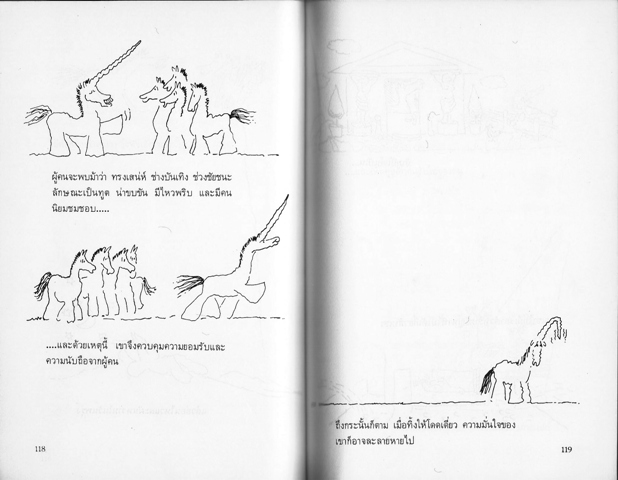 ผู้คนจะพบม้าว่า ทรงเสน่ห์ ช่างบันเทิง ช่วงชัยชนะ
ลักษณะเป็นทูต น่าขบขัน มีไหวพริบ และมีคน
นิยมชมชอบ.....
....และด้วยเหตุนี้ เขาจึงควบคุมความยอมรับและ
ความนับถือจากผู้คน
118
ถึงกระนั้นก็ตาม เมื่อทิ้งให้โดดเดี่ยว ความมั่นใจของ
เขาก็อาจละลายหายไป
119